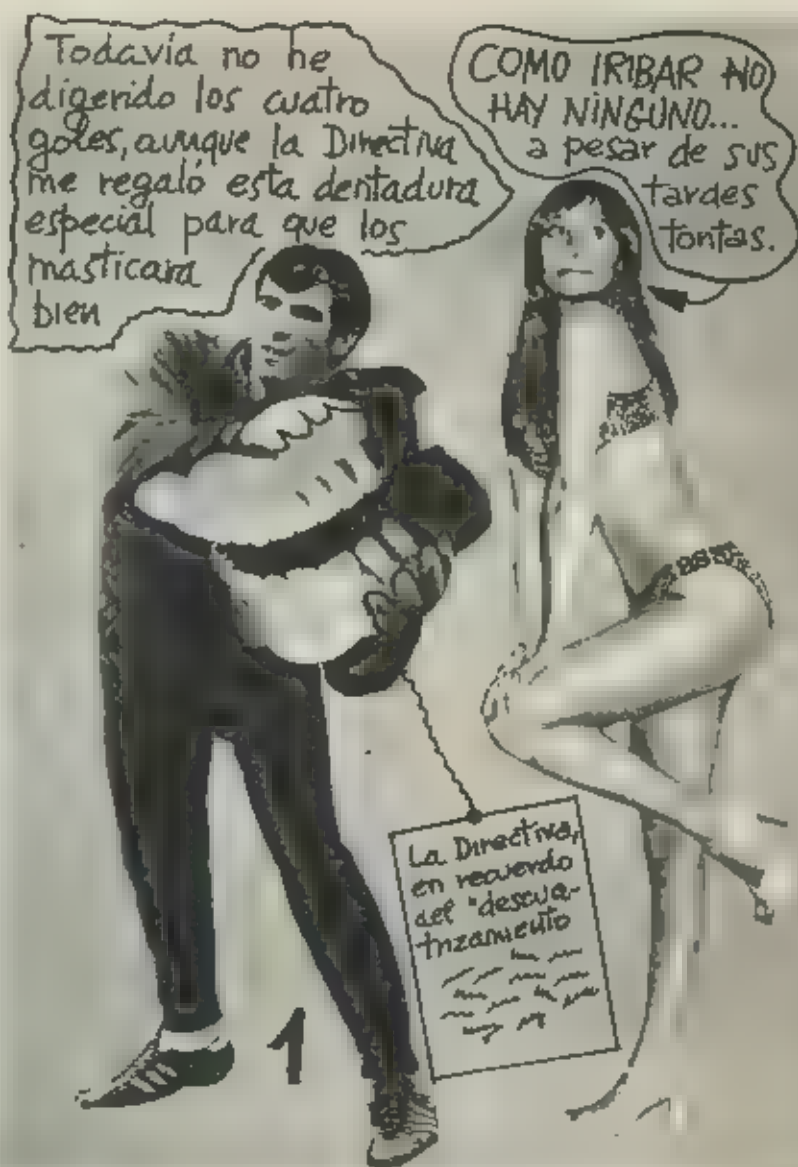 Todavía no he
digerido los cuatro
goles, aunque la Directiva
me regaló esta dentadura
especial para que los
masticara
bien
COMO IRIBAR NO
HAY NINGUNO...
a pesar de sus
tardes
tontas.
La Directiva,
en recuerdo
del "descua-
trizamiento
1